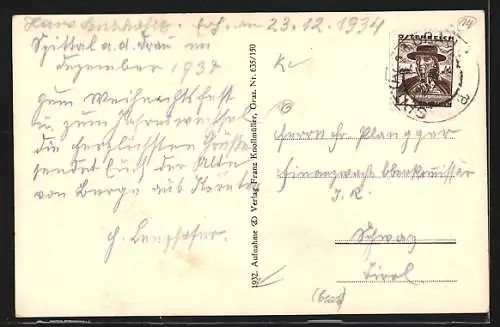 Hans Lenzhofer. erh. am 23.12.1934
Spittal a. d. Drau im
Dezember 1934
Zum Weihnachtsfest
u. zum Jahreswechsel
die herzlichsten Grüße
sendet Euch der Alte
vom Berge aus Kärnten
H. Lenzhofer.
1932. Aufnahme Verlag Franz Knollmüller, Graz. Nr. 635/150
ÖSTERREICH
Herrn Hr. Plangger
Finanzwach Oberkommissär
i. R.
Schwaz
Tirol